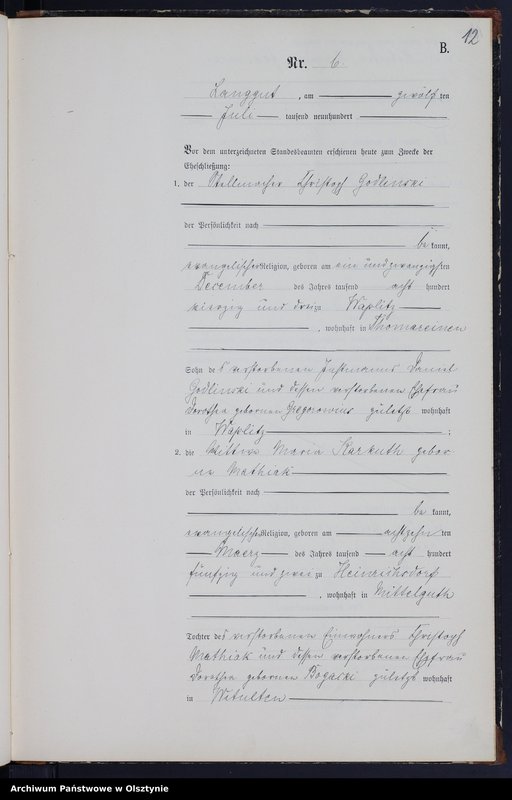 12
B.
Nr. 6
Langgut, am zwölften
Juli tausend neunhundert
Vor dem unterzeichneten Standesbeamten erschienen heute zum Zwecke der
Eheschließung:
1. der Stellmacher Christoph Godlinski
der Persönlichkeit nach
be kannt,
evangelischer Religion, geboren am ein und zwanzigsten
December des Jahres tausend acht hundert
vierzig und drei zu Waplitz
, wohnhaft in Thomareinen
Sohn des verstorbenen Instmanns Daniel
Godlinski und dessen verstorbenen Ehefrau
Dorothea gebornen Gregorowius zuletzt wohnhaft
in Waplitz ;
2. die Wittwe Maria Karkuth gebor
ne Mathiak
der Persönlichkeit nach
be kannt,
evangelischer Religion, geboren am achtzehn ten
Maerz des Jahres tausend acht hundert
fünfzig und zwei zu Heinrichsdorf
, wohnhaft in Mittelguth
Tochter des verstorbenen Einwohners Christoph
Mathiak und dessen verstorbenen Ehefrau
Dorothea gebornen Bogalski zuletzt wohnhaft
in
Archiwum Państwowe w Olsztynie